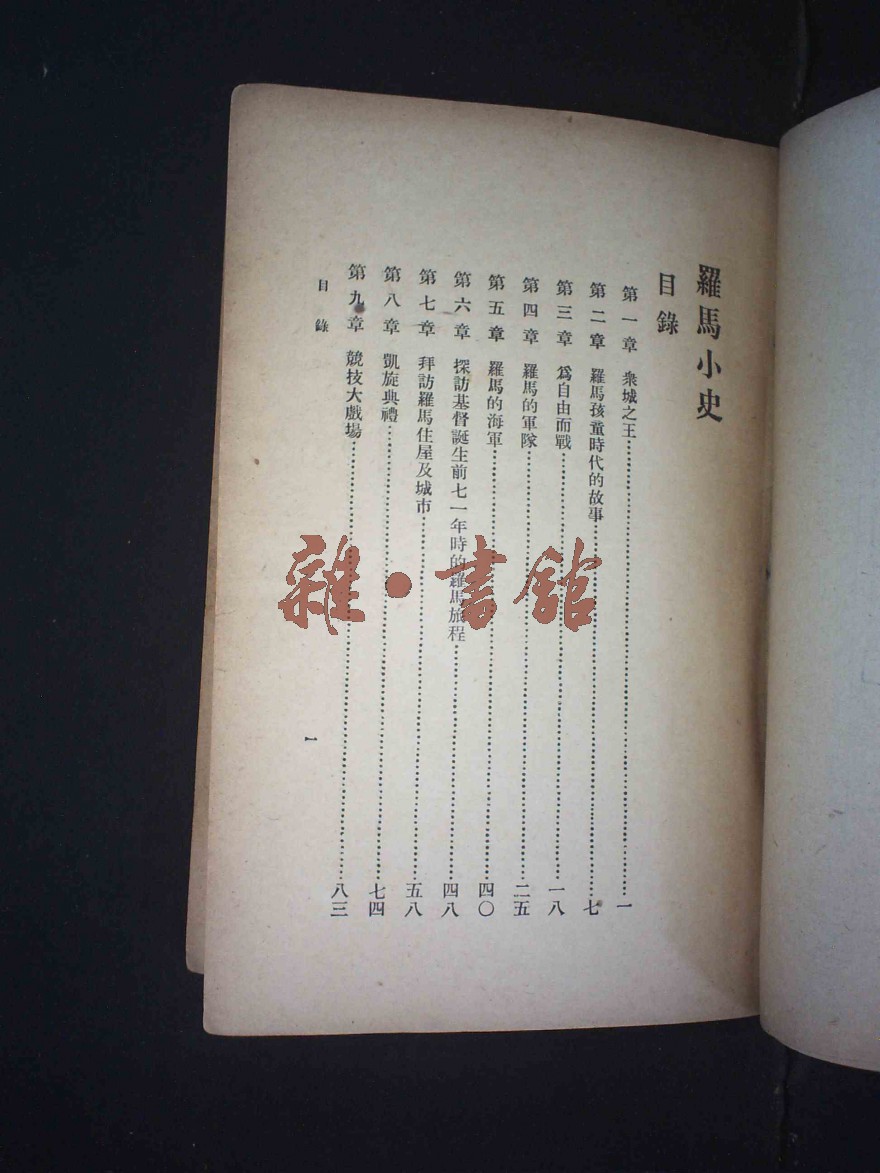 羅馬小史
目錄
第一章 衆城之王……一
第二章 羅馬孩童時代的故事……七
第三章 爲自由而戰……一八
第四章 羅馬的軍隊……二五
第五章 羅馬的海軍……四〇
第六章 探訪基督誕生前七一年時的羅馬旅程……四八
第七章 拜訪羅馬住屋及城市……五八
第八章 凱旋典禮……七四
第九章 競技大戲場……八三
目錄
一
雜·書館